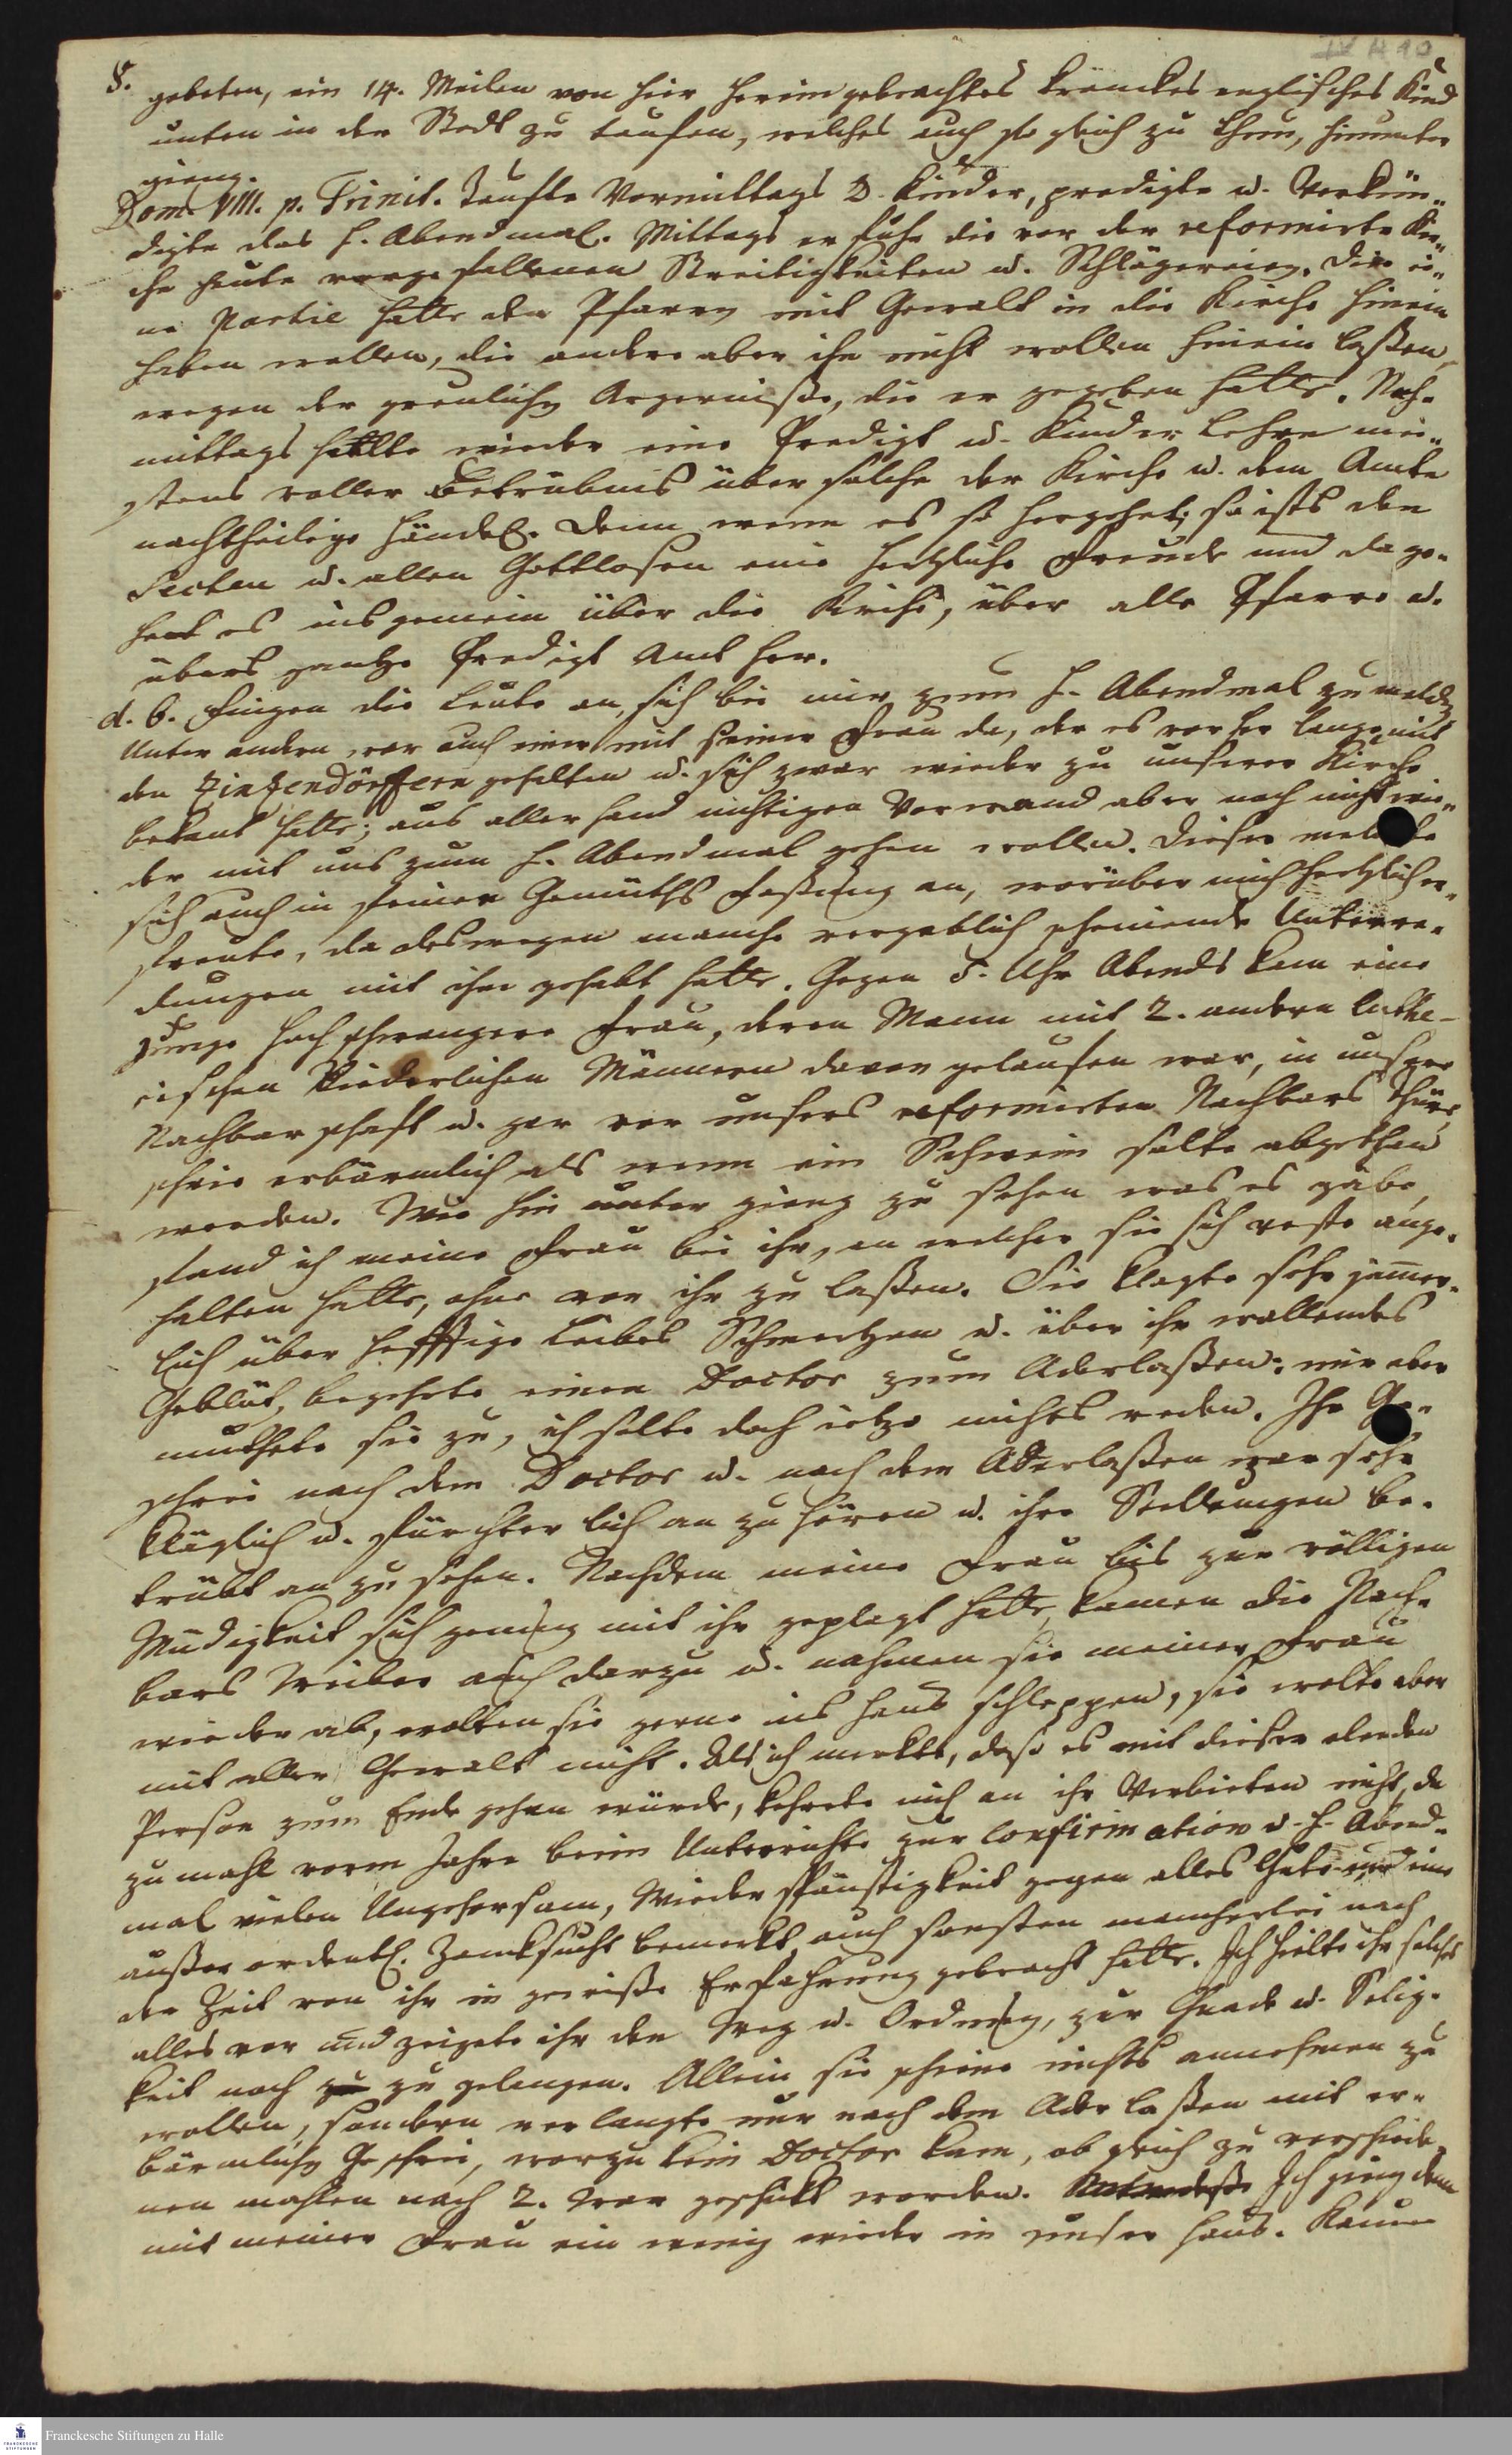 IV H 10
8.
gebeten, ein 14. Meilen von hier herein gebrachtes kranckes englisches Kind
unten in der Stadt zu taufen, welches auch so gleich zu thun, hinunter
gieng.
Dom. VIII. p. Trinit. Taufte Vormittags 2. Kinder, predigte u. Verkün-
digte das h. Abendmal. Mittags erfuhr die vor der reformirte Kir-
che heute vorgefallenen Streitigkeiten u. Schlägereien. Die ei-
ne Partie hatte den Pfarrn mit Gewalt in die Kirche hinein
haben wollen, die andere aber ihn nicht wollen hinein laßen,
wegen der greulichen Argerniße, die er gegeben hatte. Nach-
mittags hatte wieder eine Predigt u. Kinder Lehre mei-
stens voller Betrübnis über solche der Kirche u. dem Amte
nachtheilige Händel. Denn wenn es so hergehet, so ists den
Secten u. allen Gottlosen eine hertzliche Freude und da ge-
het es insgemein über die Kirche, über alle Pfarre u.
übers gantze Predigt Amt her.
d. 6. fingen die Leute an, sich bei mir zum h. Abendmal zu melden
Unter andern war auch einer mit seiner Frau da, der es vorher lange mit
den Zinzendörffern gehalten u. sich zwar wieder zu unserer Kirche
bekant hatte; aus aller hand nichtigen Vorwand aber noch nicht wie-
der mit uns zum h. Abendmal gehen wollen. Dieser meldete
sich auch in feiner Gemüths Faßung an, worüber mich hertzlich er-
freute, da deswegen manche vergeblich scheinende Unterre-
dungen mit ihm gehabt hatte. Gegen 5. Uhr Abends kam eine
junge hoch schwangere Frau, deren Mann mit 2. andern luthe-
rischen liederlichen Männern davon gelaufen war, in unserer
Nachbarschaft u. zwar vor unsers reformirten Nachbars Thüre,
schrie erbärmlich als wenn ein Schwein solte abgethan
werden. Wie hin unter gieng zu sehen was es gäbe,
fand ich meine Frau bei ihr, an welcher sie sich veste ange-
halten hatte, ohne von ihr zu laßen. Sie klagte sehr jam̅er-
lich über hefftige Leibes Schmertzen u. über ihr wallendes
Geblüt, begehrte einen Doctor zum Aderlaßen: mir aber
muthete sie zu, ich solte doch ietzo nichts reden. Ihr Ge-
schrei nach dem Doctor u. nach dem Aderlaßen war sehr
kläglich u. fürchterlich an zu hören u. ihre Stellungen be-
trübt an zu sehen. Nachdem meine Frau bis zur völligen
Müdigkeit sich genung mit ihr geplagt hatte, kamen die Nach-
bars Weiber auch darzu u. nahmen sie meiner Frau
wieder ab, wolten sie gerne ins Haus schleppen, sie wolte aber
mit aller Gewalt nicht. Als ich merkte, daß es mit dieser elenden
Person zum Ende gehen würde, kehrete mich an ihr Verbieten nicht, da
zu mahl vorm Jahre beim Unterrichte zur Confirmation u. h. Abend-
mal vielen Ungehorsam, Wieder spänstigkeit gegen alles Gute und eine
außer ordentl. Zanksucht bemerkt, auch sonsten mancherlei nach
der Zeit von ihr in gewiße Erfahrung gebracht hatte. Ich hielte ihr solches
alles vor und zeigete ihr den Weg u. Ordnung, zur Gnade u. Selig-
keit noch zu zu gelangen. Allein sie schiene nichts annehmen zu
wollen, sondern verlangte nur nach dem Aderlaßen mit er-
bärmlichen Geschrei, worzu kein Doctor kam, ob gleich zu verschiede-
nen mahlen nach 2. war geschickt worden. Ich gieng denn
mit meiner Frau ein wenig wieder in unser Haus. Kaum
Franckesche Stiftungen zu Halle